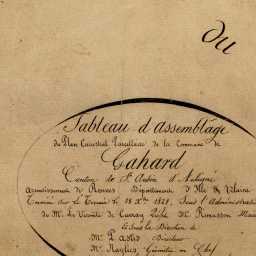 du
Tableau d'Assemblage
du Plan Cadastral Parcellaire de la Commune de
Gahard
Canton de St Aubin d'Aubigné
Arrondissement de Rennes Département d'Ille & Vilaine
Terminé sur le Terrain le 1821, Sous l'Administration
de Mr. Le Vicomte de Préfet Mr.
& Sous la Direction de
Mr. Directeur
Mr. Géomètre en Chef